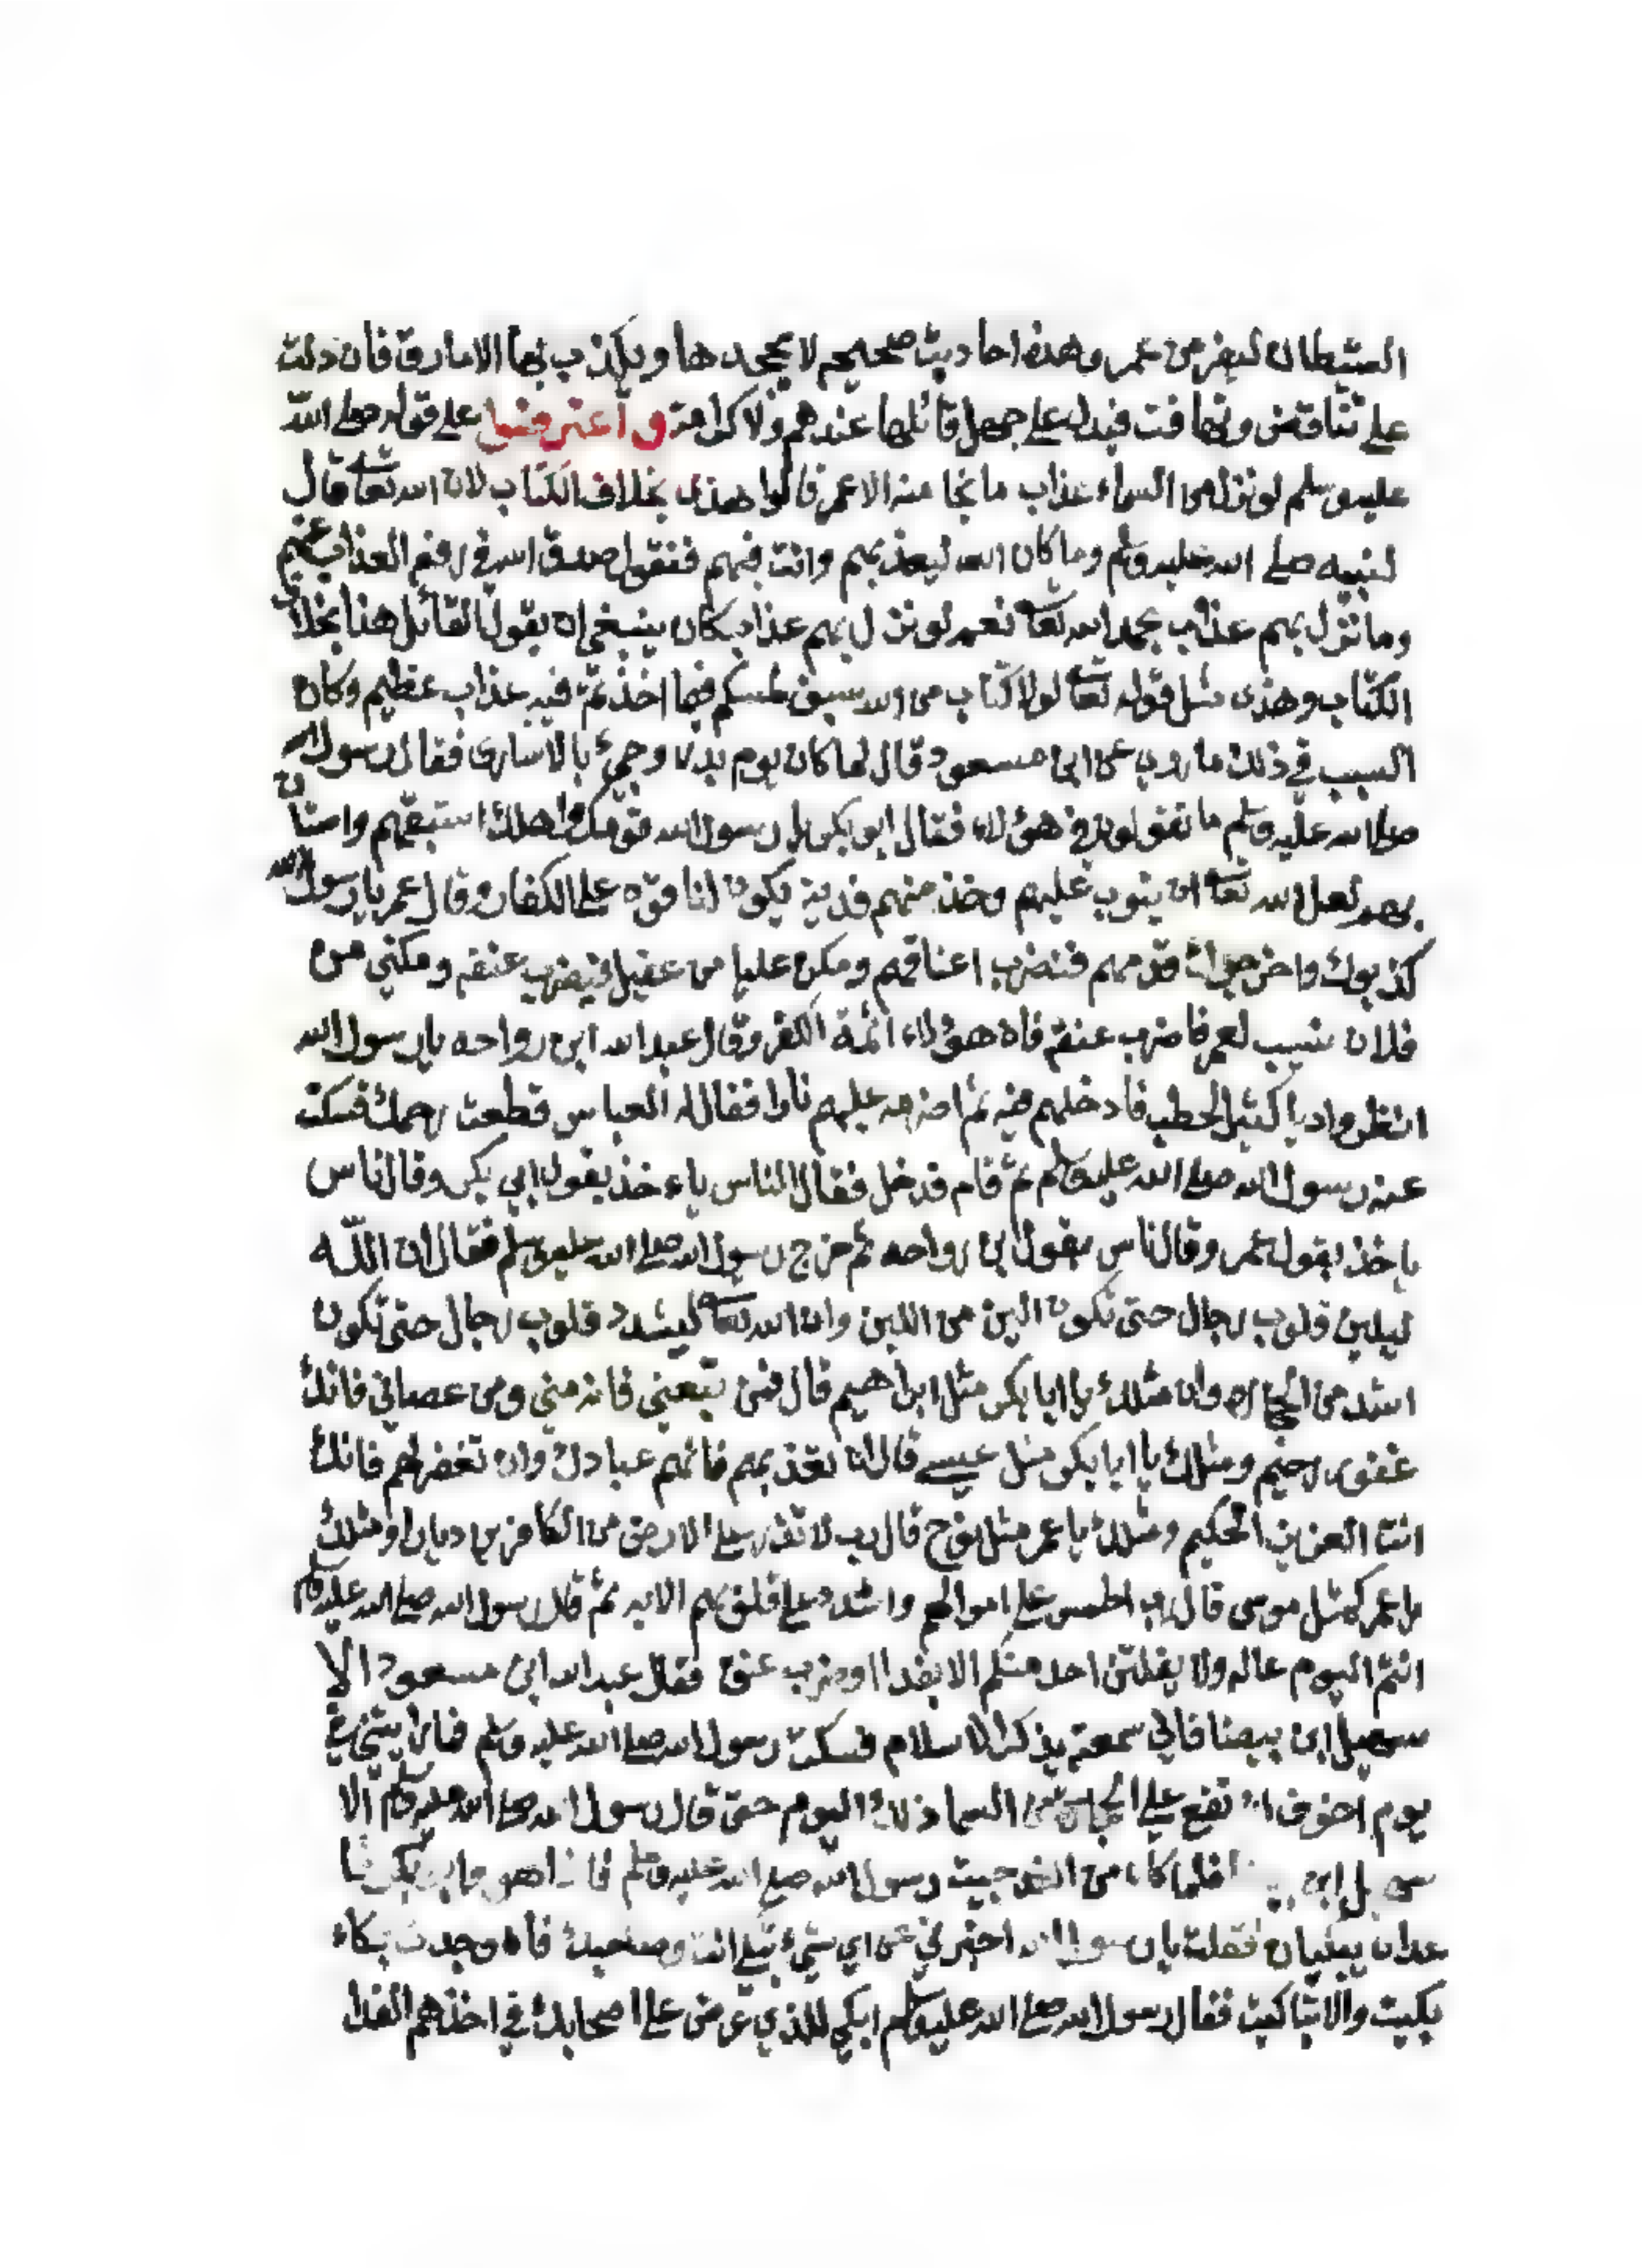 الشيطان ليفر من عمر وهذه احاديث صحيحه لا يجحدها ويكذب بها الا مارق فان دلت
على تناقض وتهافت فيدل على جهل قائلها عندهم ولا كرامة واعترضوا على قوله صلى الله
عليه وسلم لو نزل من السماء عذاب ما نجا منه الا عمر قالوا هذا بخلاف الكتاب لان الله تعا قال
لنبيه صلى الله عليه وسلم وما كان الله ليعذبهم وانت فيهم فنقول صدق الله في رفع العذاب عنهم
وما نزل بهم عذاب بحمد الله تعا نعم لو نزل بهم عذاب كان ينبغي ان يقول القائل هذا بخلاف
الكتاب وهذا مثل قوله تعا لولا كتاب من الله سبق لمسكم فيما اخذتم فيه عذاب عظيم وكان
السبب في ذلك ما روي عن ابن مسعود قال لما كان يوم بدر وجئ بالاسارى فقال رسول الله
صلى الله عليه وسلم ما تقولون في هؤلاء فقال ابو بكر يا رسول الله قومك واهلك استبقهم واستان
بهم لعل الله تعا ان يتوب عليهم وخذ منهم فدية يكون لنا قوة على الكفار وقال عمر يا رسول الله
كذبوك واخرجوك قدمهم فنضرب اعناقهم ومكن عليا من عقيل فيضرب عنقه ومكني من
فلان نسيب لعمر فاضرب عنقه فان هؤلاء ائمة الكفر وقال عبد الله ابن رواحه يا رسول الله
انظر واديا كثير الحطب فادخلهم فيه ثم اضرمه عليهم نارا فقال له العباس قطعت رحمك فسكت
عنه رسول الله صلى الله عليه وسلم ثم قام فدخل فقال الناس ياءخذ بقول ابي بكر وقال ناس
ياخذ بقول عمر وقال ناس بقول ابن رواحه ثم خرج رسول الله صلى الله عليه وسلم فقال ان الله
ليلين قلوب رجال حتى تكون الين من اللبن وان الله تعا ليشدد قلوب رجال حتى تكون
اشد من الحجاره وان مثلك يا ابا بكر مثل ابراهيم قال فمن تبعني فانه مني ومن عصاني فانك
غفور رحيم ومثلك يا ابا بكر مثل عيسى قال ان تعذبهم فانهم عبادك وان تغفر لهم فانك
انت العزيز الحكيم ومثلك يا عمر مثل نوح قال رب لا تذر على الارض من الكافرين ديارا ومثلك
يا عمر كمثل موسى قال رب اطمس على اموالهم واشدد على قلوبهم الايه ثم قال رسول الله صلى الله عليه وسلم
انتم اليوم عاله ولا يفلتن احد منكم الا بفدا او ضرب عنق فقال عبد الله ابن مسعود الا
سهيل ابن بيضا فاني سمعته يذكر الاسلام فسكت رسول الله صلى الله عليه وسلم فما رايتني في
يوم اخوف ان تقع علي الحجارة من السما ذلك اليوم حتى قال رسول الله صلى الله عليه وسلم الا
سهيل ابن بيضا فلما كان من الغد جيت رسول الله صلى الله عليه وسلم فاذا هو وابو بكر قا
عدان يبكيان فقلت يا رسول الله اخبرني عن اي شيء تبكي انت وصاحبك فان وجدت بكاء
بكيت والا تباكيت فقال رسول الله صلى الله عليه وسلم ابكي للذي عرض على اصحابك في اخذهم الفدا